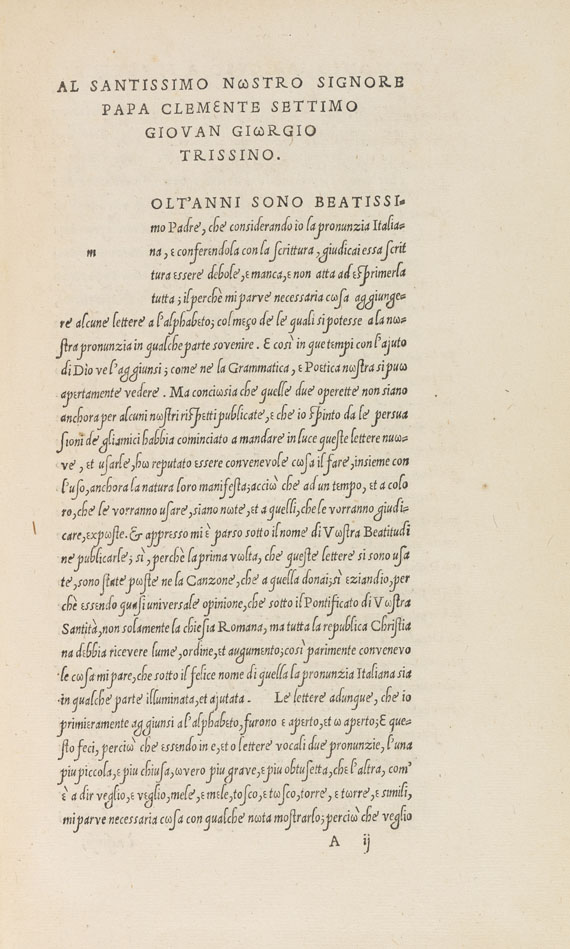 AL SANTISSIMO NωSTRO SIGNORE
PAPA CLEMεNTE SETTIMO
GIOVAN GIωRGIO
TRISSINO.
OLT'ANNI SONO BEATISSI=
mo Padre, che considerando io la pronunzia Italia=
m
na, ε conferendola con la ſcrittura, giudicai essa ſcrit
tura εssere debole, ε manca, ε non atta ad εſprimerla
tutta; il perchè mi parve necessaria cωſa aggiunge=
re alcune lettere a l'alphabεto; col meço de le quali si potesse a la nω=
ſtra pronunzia in qualche parte sovenire. ε così in que tempi con l'ajuto
di Dio ve l'aggiunsi; come ne la Grammatica, ε Poεtica nωſtra si puω
apertamente vedere. Ma conciωsia che quelle due operette non siano
anchora per alcuni nωſtri riſpεtti publicate, ε che io ſpinto da le persua
ſioni de gli amici habbia cominciato a mandare in luce queſte lettere nuω=
ve, εt uſarle, hω reputato εssere convenevole cωſa il fare, insieme con
l'uſo, anchora la natura loro manifεſta; acciω che ad un tεmpo, εt a colo
ro, che le vorranno uſare, siano nωte, εt a quelli, che le vorranno giudi=
care, expωſte. & appresso mi ὲ parso sotto il nome di Vωſtra Beatitudi
ne publicarle; sì, perchè la prima vωlta, che queſte lettere si sono uſa
te, sono ſtate pωſte ne la Canzone, che a quella donai; sì εziandio, per
chè εssendo quaſi universale opinione, che sotto il Pontificato di Vωſtra
Santità, non solamente la chieſia Romana, ma tutta la republica Chriſtia
na debbia ricevere lume, ordine, εt augumento; così parimente convenevo
le cωſa mi pare, che sotto il felice nome di quella la pronunzia Italiana sia
in qualche parte illuminata, εt ajutata. Le lettere adunque, che io
primiεramente aggiunsi a l'alphabεto, furono ε apεrto, εt ω apεrto; ε que=
ſto feci, perciω che εssendo in e, εt o lettere vocali due pronunzie, l'una
piu piccola, ε piu chiuſa, ωvero piu grave, ε piu obtuſetta, che l'altra, com'
ὲ a dir veglio, ε vεglio, mele, ε mεle, tosco, ε tωsco, torre, ε tωrre, ε simili,
mi parve necessaria cωſa con qualche nωta moſtrarlo; perciω che veglio
A ij